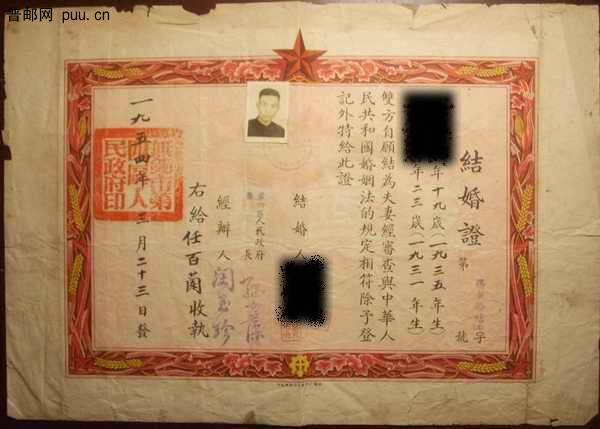 普邮网 puu.cn
結婚證
第 字
號
年十九歲(一九三五年生)
年二三歲(一九三一年生)
雙方自願結為夫妻經審查與中華人
民共和國婚姻法的規定相符除予登
記外特給此證
結婚人
人民政府
長
經辦人
右給任百蘭收執
一九五四年三月二十三日發
民政府印